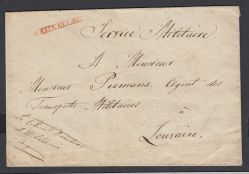 BRUXELLES
Service Militaire
A Monsieur
Monsieur Permans, Agent des
Transports Militaires
à
Louvain.